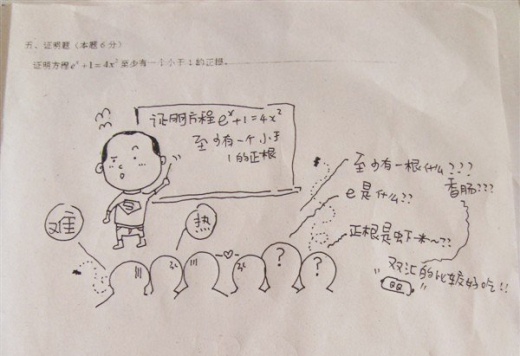 五、证明题（本题6分）
证明方程e^x+1=4x^2至少有一个小于1的正根。
证明方程e^x+1=4x^2
至少有一个小于
1的正根
至少有一根什么???
香肠???
e是什么??
正根是虫下来~??
双汇的比较好吃!!
难
热
? ?